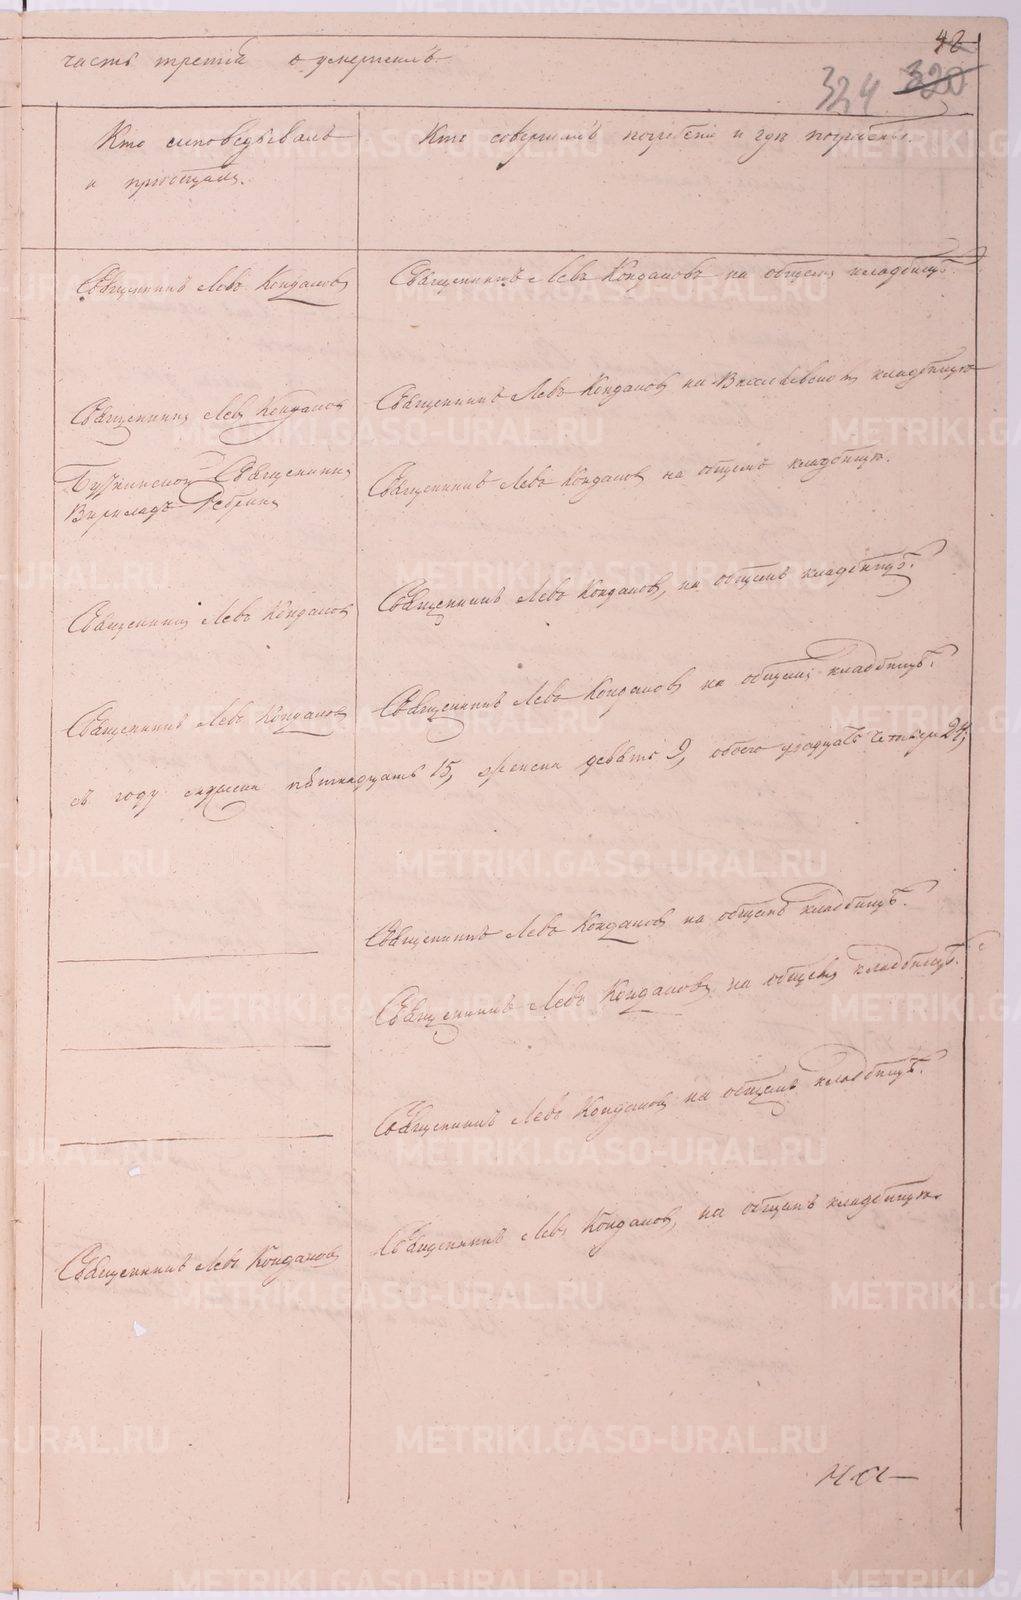 42
часть третія о умершихъ
324 320
Кто исповѣдывалъ
и пріобщалъ.
Кто совершалъ погребеніе и гдѣ погребены.
Священникъ Левъ Кондаковъ
Священникъ Левъ Кондаковъ на общемъ кладбищѣ.
Священникъ Левъ Кондаковъ
Священникъ Левъ Кондаковъ на кладбищѣ
Священникъ
Священникъ Левъ Кондаковъ на общемъ кладбищѣ.
Священникъ Левъ Кондаковъ
Священникъ Левъ Кондаковъ, на общемъ кладбищѣ.
Священникъ Левъ Кондаковъ
Священникъ Левъ Кондаковъ на общемъ кладбищѣ.
въ году мужеска пятнадцать 15, женска девять 9, обоего двадцать четыре 24,
Священникъ Левъ Кондаковъ на общемъ кладбищѣ.
Священникъ Левъ Кондаковъ на общемъ кладбищѣ.
Священникъ Левъ Кондаковъ на общемъ кладбищѣ.
Священникъ Левъ Кондаковъ
Священникъ Левъ Кондаковъ, на общемъ кладбищѣ.
METRIKI.GASO-URAL.RU